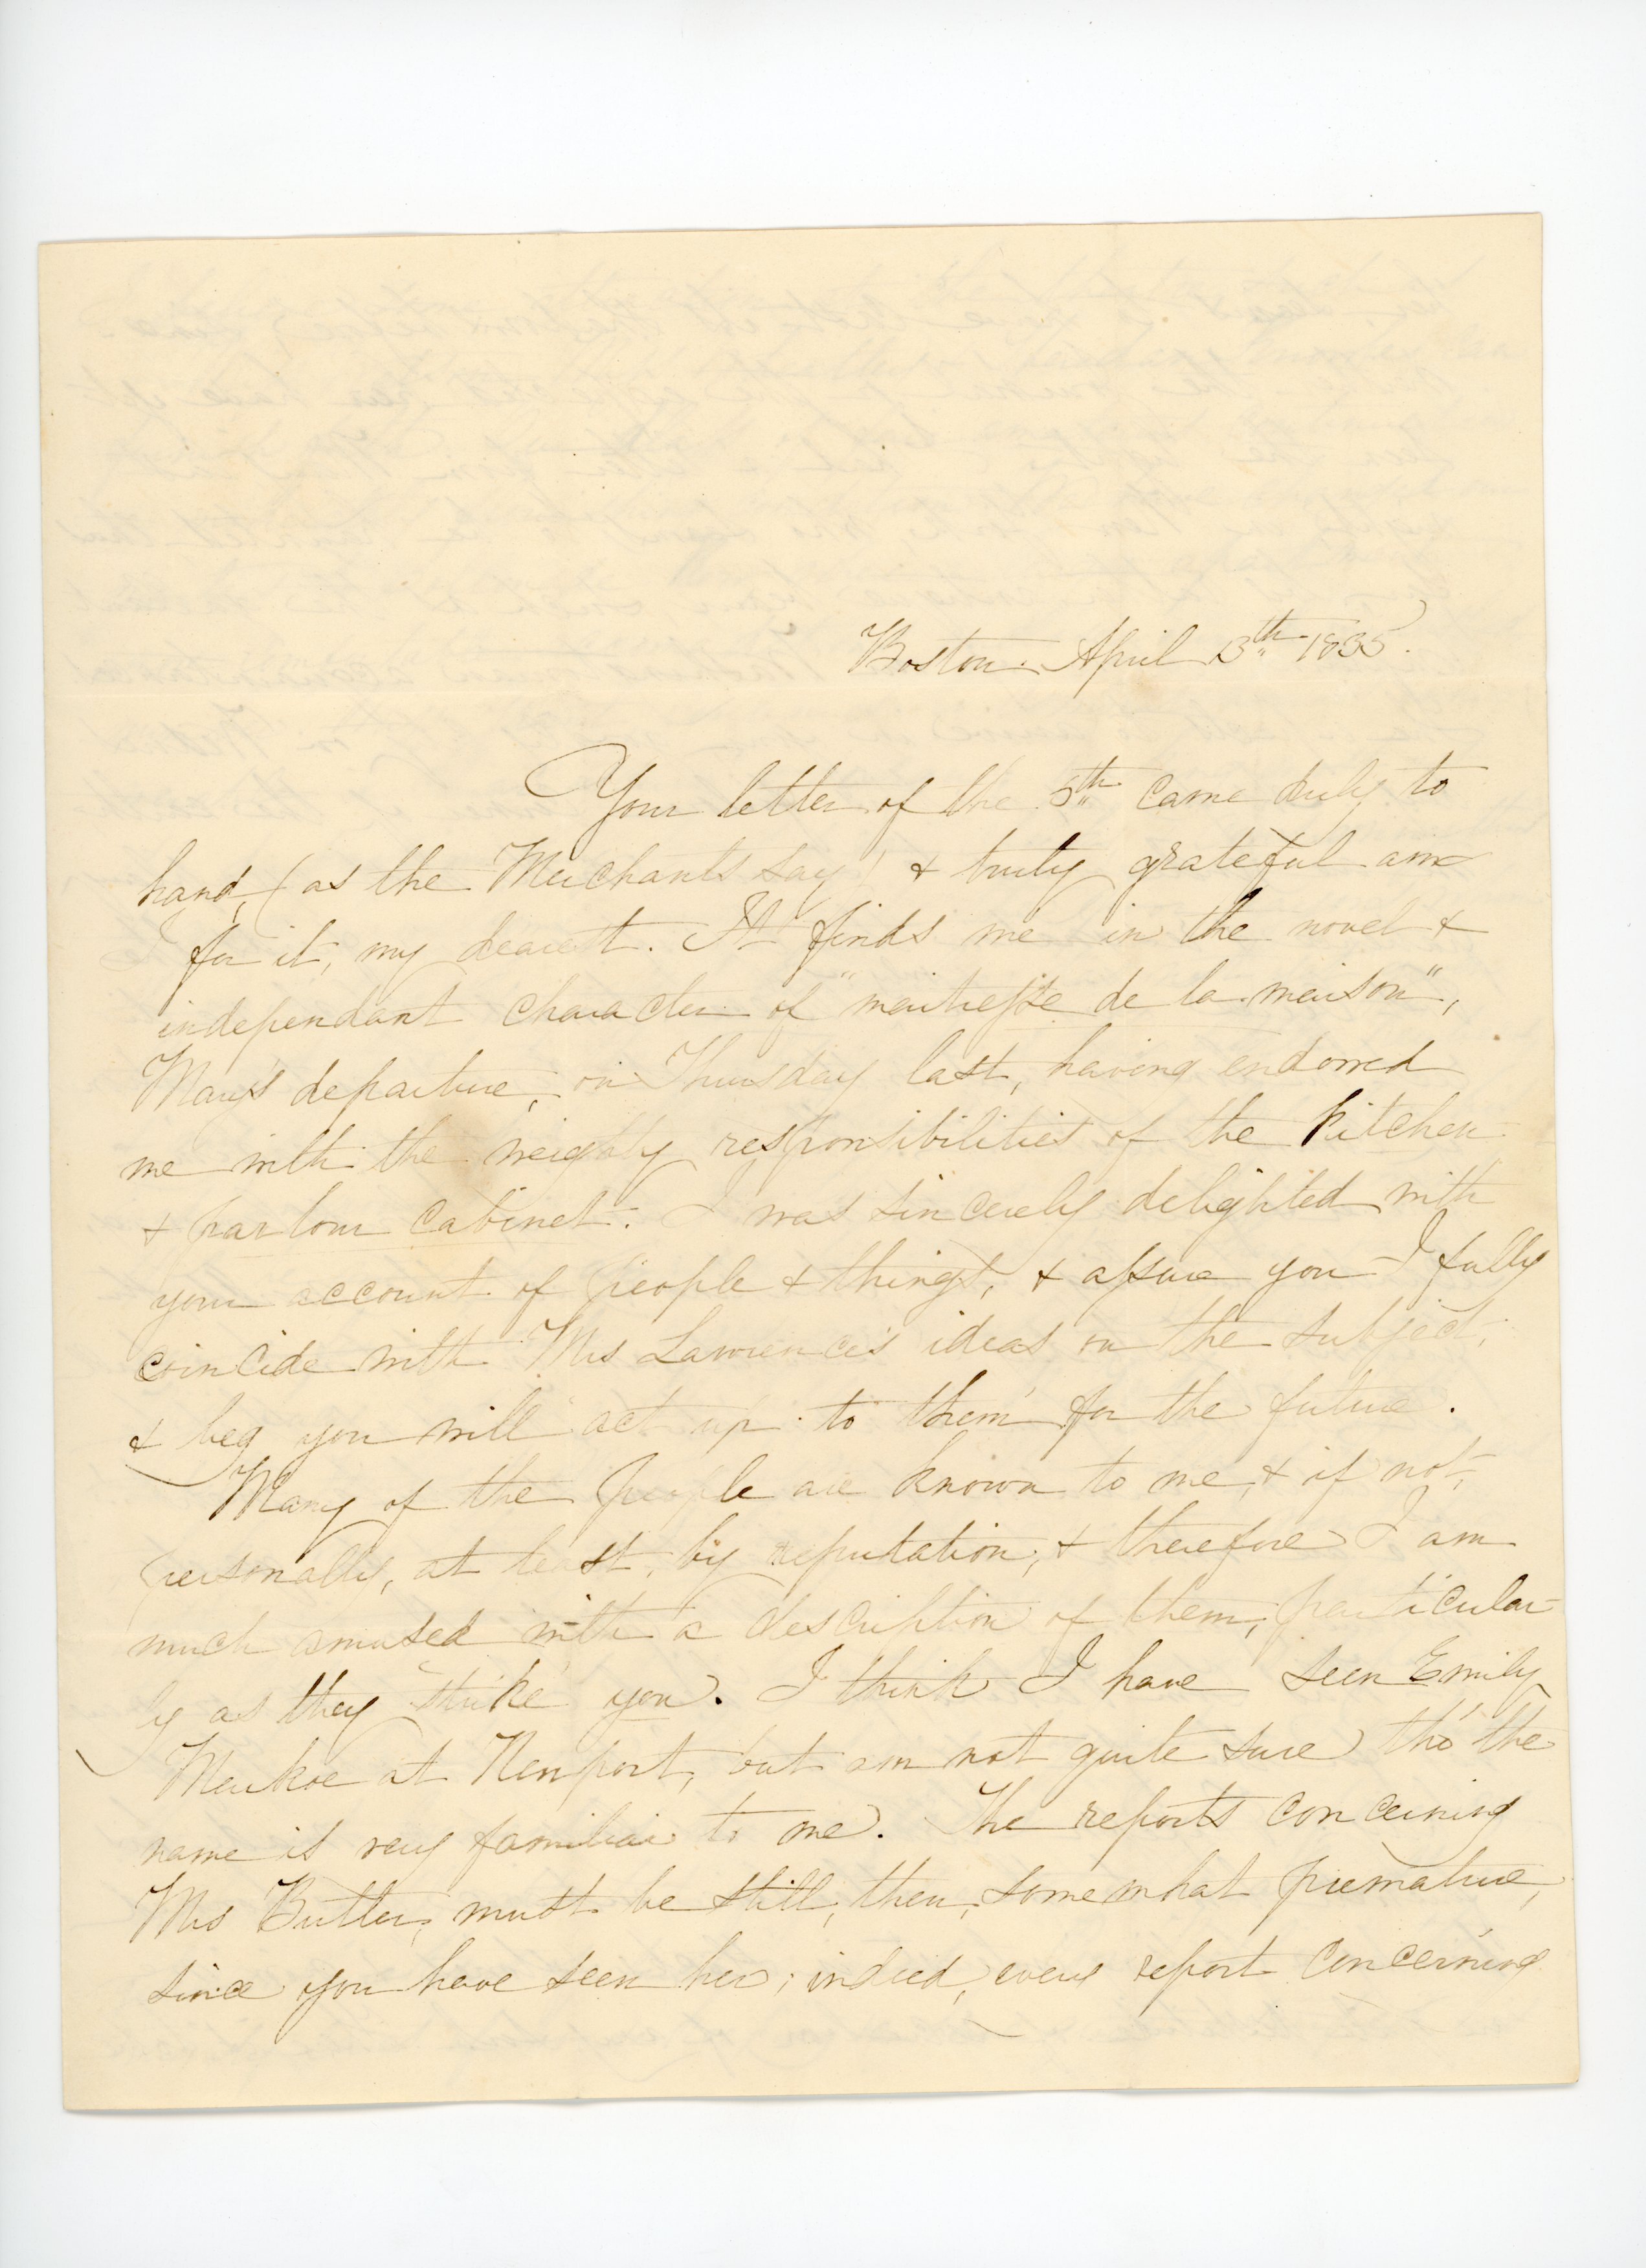 Boston April 13th 1835.
Your letter of the 5th came duly to
hand, (as the Merchants say) & truly grateful am
I for it, my dearest. It finds me in the novel &
independant character of "maitresse de la maison",
Mary's departure, on Thursday last, having endowed
me with the weighty responsibilities of the kitchen
& parlour cabinet. I was sincerely delighted with
your account of people & things, & assure you I fully
coincide with Mrs Lawrence's ideas on the subject,
& beg you will act up to them for the future.
Many of the people are known to me, & if not,
personally, at least, by reputation, & therefore I am
much amused with a description of them, particular-
ly as they strike you. I think I have seen Emily
at Newport, but am not quite sure tho' the
name is very familiar to me. The reports concerning
Mrs Butler, must be still, then, somewhat premature,
since you have seen her; indeed, every report concerning